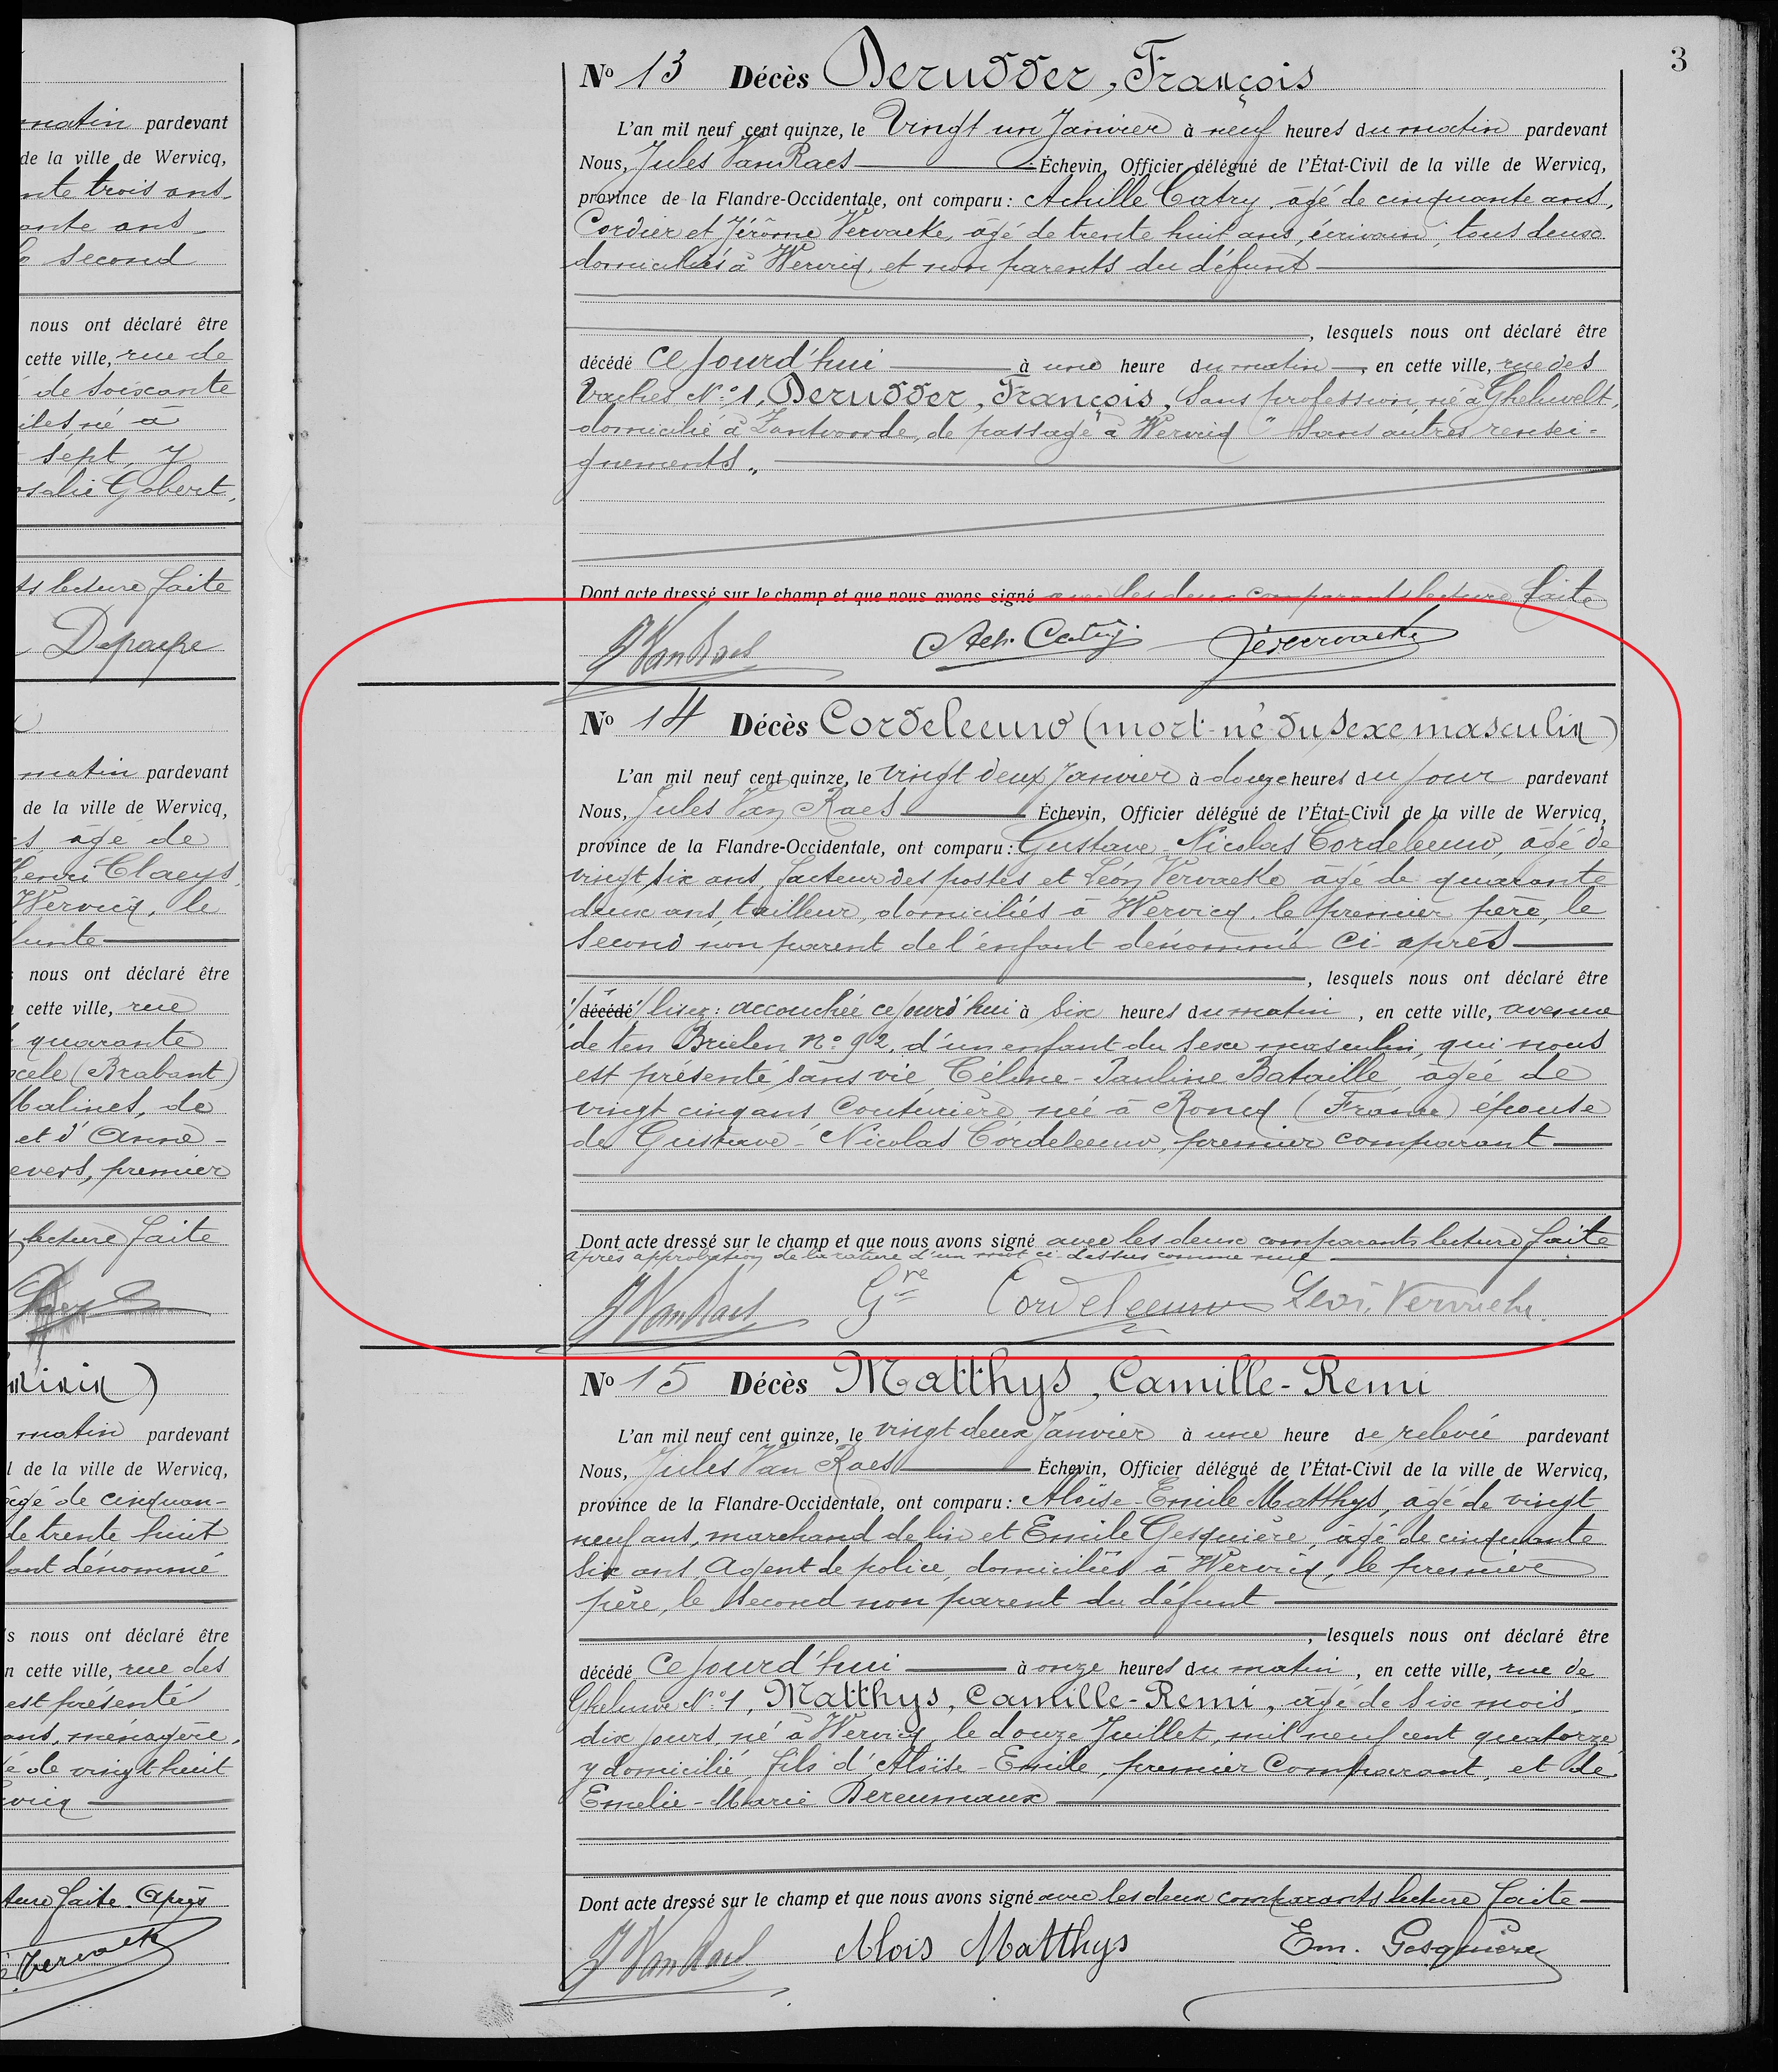 3
matin pardevant
de la ville de Wervicq,
nte trois ans.
ante ans
second
nous ont déclaré être
cette ville, rue de
de soixante
né à
sept, y
Gobert,
lecture faite
matin pardevant
de la ville de Wervicq,
âgé de
Henri Claeys,
Wervicq, le
funte
nous ont déclaré être
cette ville, rue
quarante
(Brabant)
Malines, de
et d'Anne-
evers, premier
lecture faite
matin pardevant
l de la ville de Wervicq,
âgé de cinquan-
de trente huit
fant dénommé
s nous ont déclaré être
n cette ville, rue des
est présenté
ans, ménagère,
é de vingt huit
ervicq
ture faite. Après
Vervaeke
No 13 Décès Derudder, François
L'an mil neuf cent quinze, le Vingt un Janvier à neuf heures du matin pardevant
Nous, Jules Van Raes Échevin, Officier délégué de l'État-Civil de la ville de Wervicq,
province de la Flandre-Occidentale, ont comparu: Achille Catry, âgé de cinquante ans,
Cordier et Jérôme Vervaeke, âgé de trente huit ans, écrivain, tous deux
domiciliés à Wervicq, et non parents du défunt
, lesquels nous ont déclaré être
décédé ce jourd'hui à une heure du matin, en cette ville, rue des
Vaches No 1, Derudder, François, sans profession, né à Gheluvelt,
domicilié à Zantvoorde, de passage à Wervicq " Sans autres rensei-
gnements„
Dont acte dressé sur le champ et que nous avons signé avec les deux comparants lecture faite
J Van Raes Ach. Catry Je Vervaeke
No 14 Décès Cordeleeuw (mort-né du sexe masculin)
L'an mil neuf cent quinze, le vingt deux Janvier à douze heures du jour pardevant
Nous, Jules Van Raes Échevin, Officier délégué de l'État-Civil de la ville de Wervicq,
province de la Flandre-Occidentale, ont comparu: Gustave-Nicolas Cordeleeuw, âgé de
vingt six ans, facteur des postes et Léon Vervaeke âgé de quarante
deux ans, tailleur, domiciliés à Wervicq, le premier père, le
second non parent de l'enfant dénommé ci-après
, lesquels nous ont déclaré être
décédé/ lisez: accouchée ce jourd'hui à six heures du matin, en cette ville, avenue
de ten Brielen No 92, d'un enfant du sexe masculin, qui nous
est présenté sans vie, Céline-Pauline Bataille, âgée de
vingt cinq ans Couturière née à Roncq (France) épouse
de Gustave-Nicolas Cordeleeuw, premier comparant
Dont acte dressé sur le champ et que nous avons signé avec les deux comparants lecture faite
après approbation de la rature d'un mot ci-dessus comme nul
J Van Raes Gve Cordeleeuw Léon Vervaeke
No 15 Décès Matthys, Camille-Remi
L'an mil neuf cent quinze, le vingt deux Janvier à une heure de relevée pardevant
Nous, Jules Van Raes Échevin, Officier délégué de l'État-Civil de la ville de Wervicq,
province de la Flandre-Occidentale, ont comparu: Aloïse-Emile Matthys, âgé de vingt
neuf ans, marchand de lin et Emile Gesquière, âgé de cinquante
six ans, Agent de police, domiciliés à Wervicq, le premier
père, le second non parent du défunt
, lesquels nous ont déclaré être
décédé Ce jourd'hui à onze heures du matin, en cette ville, rue de
Gheluwe No 1, Matthys, Camille-Remi, âgé de six mois,
dix jours, né à Wervicq le douze Juillet, mil neuf cent quatorze
y domicilié, fils d'Aloïse-Emile, premier Comparant, et de
Emelie-Marie Dereumaux
Dont acte dressé sur le champ et que nous avons signé avec les deux comparants lecture faite
J Van Raes Aloïs Matthys Em. Gesquière